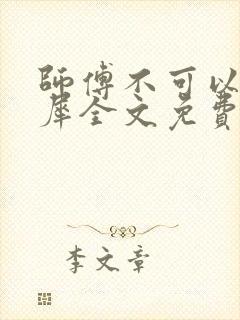 師傅不可以
犀全文免費
李文章